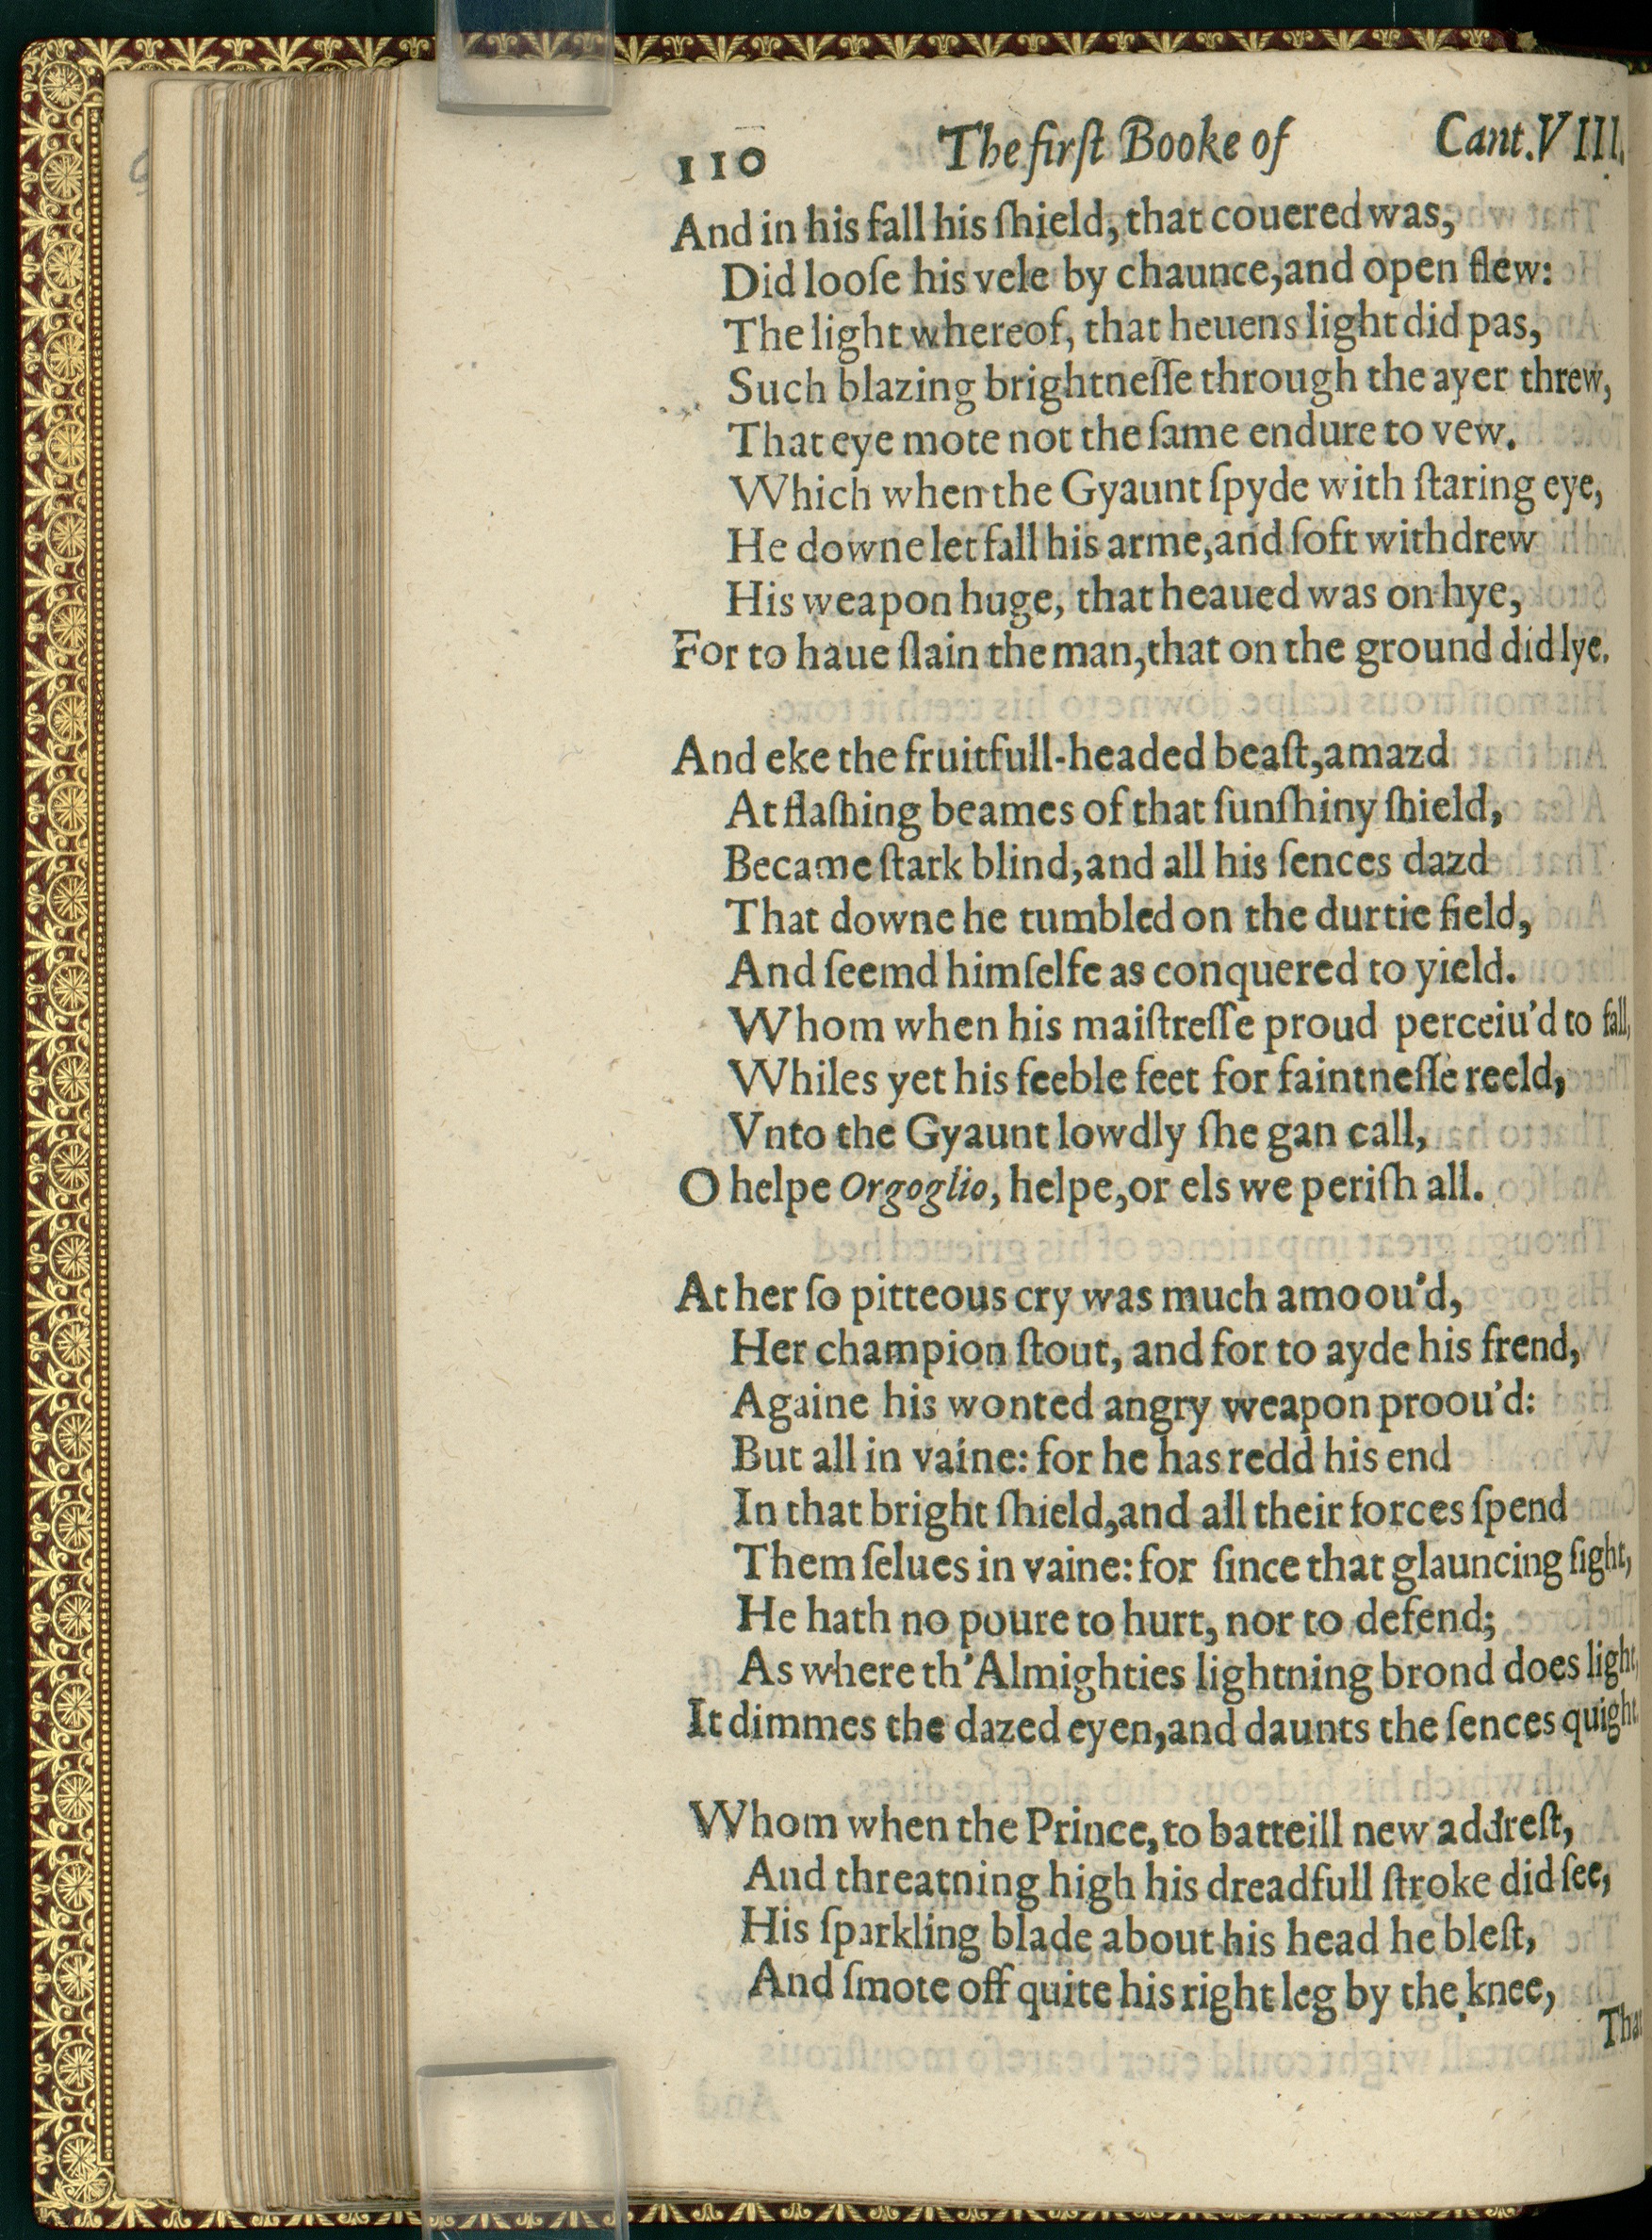 110 The firſt Booke of Cant. VIII.
And in his fall his ſhield, that couered was,
Did looſe his vele by chaunce, and open flew:
The light whereof, that heuens light did pas,
Such blazing brightneſſe through the ayer threw,
That eye mote not the ſame endure to vew.
Which when the Gyaunt ſpyde with ſtaring eye,
He downe let fall his arme, and ſoft withdrew
His weapon huge, that heaued was on hye,
For to haue ſlain the man, that on the ground did lye.
And eke the fruitfull-headed beaſt, amazd
At flaſhing beames of that ſunſhiny ſhield,
Became ſtark blind, and all his ſences dazd
That downe he tumbled on the durtie field,
And ſeemd himſelfe as conquered to yield.
Whom when his maiſtreſſe proud perceiu'd to fall,
Whiles yet his feeble feet for faintneſſe reeld,
Vnto the Gyaunt lowdly ſhe gan call,
O helpe Orgoglio, helpe, or els we periſh all.
At her ſo pitteous cry was much amoou'd,
Her champion ſtout, and for to ayde his frend,
Againe his wonted angry weapon proou'd:
But all in vaine: for he has redd his end
In that bright ſhield, and all their forces ſpend
Them ſelues in vaine: for ſince that glauncing ſight,
He hath no poure to hurt, nor to defend;
As where th'Almighties lightning brond does light,
It dimmes the dazed eyen, and daunts the ſences quight
Whom when the Prince, to batteill new addreſt,
And threatning high his dreadfull ſtroke did ſee,
His ſparkling blade about his head he bleſt,
And ſmote off quite his right leg by the knee,